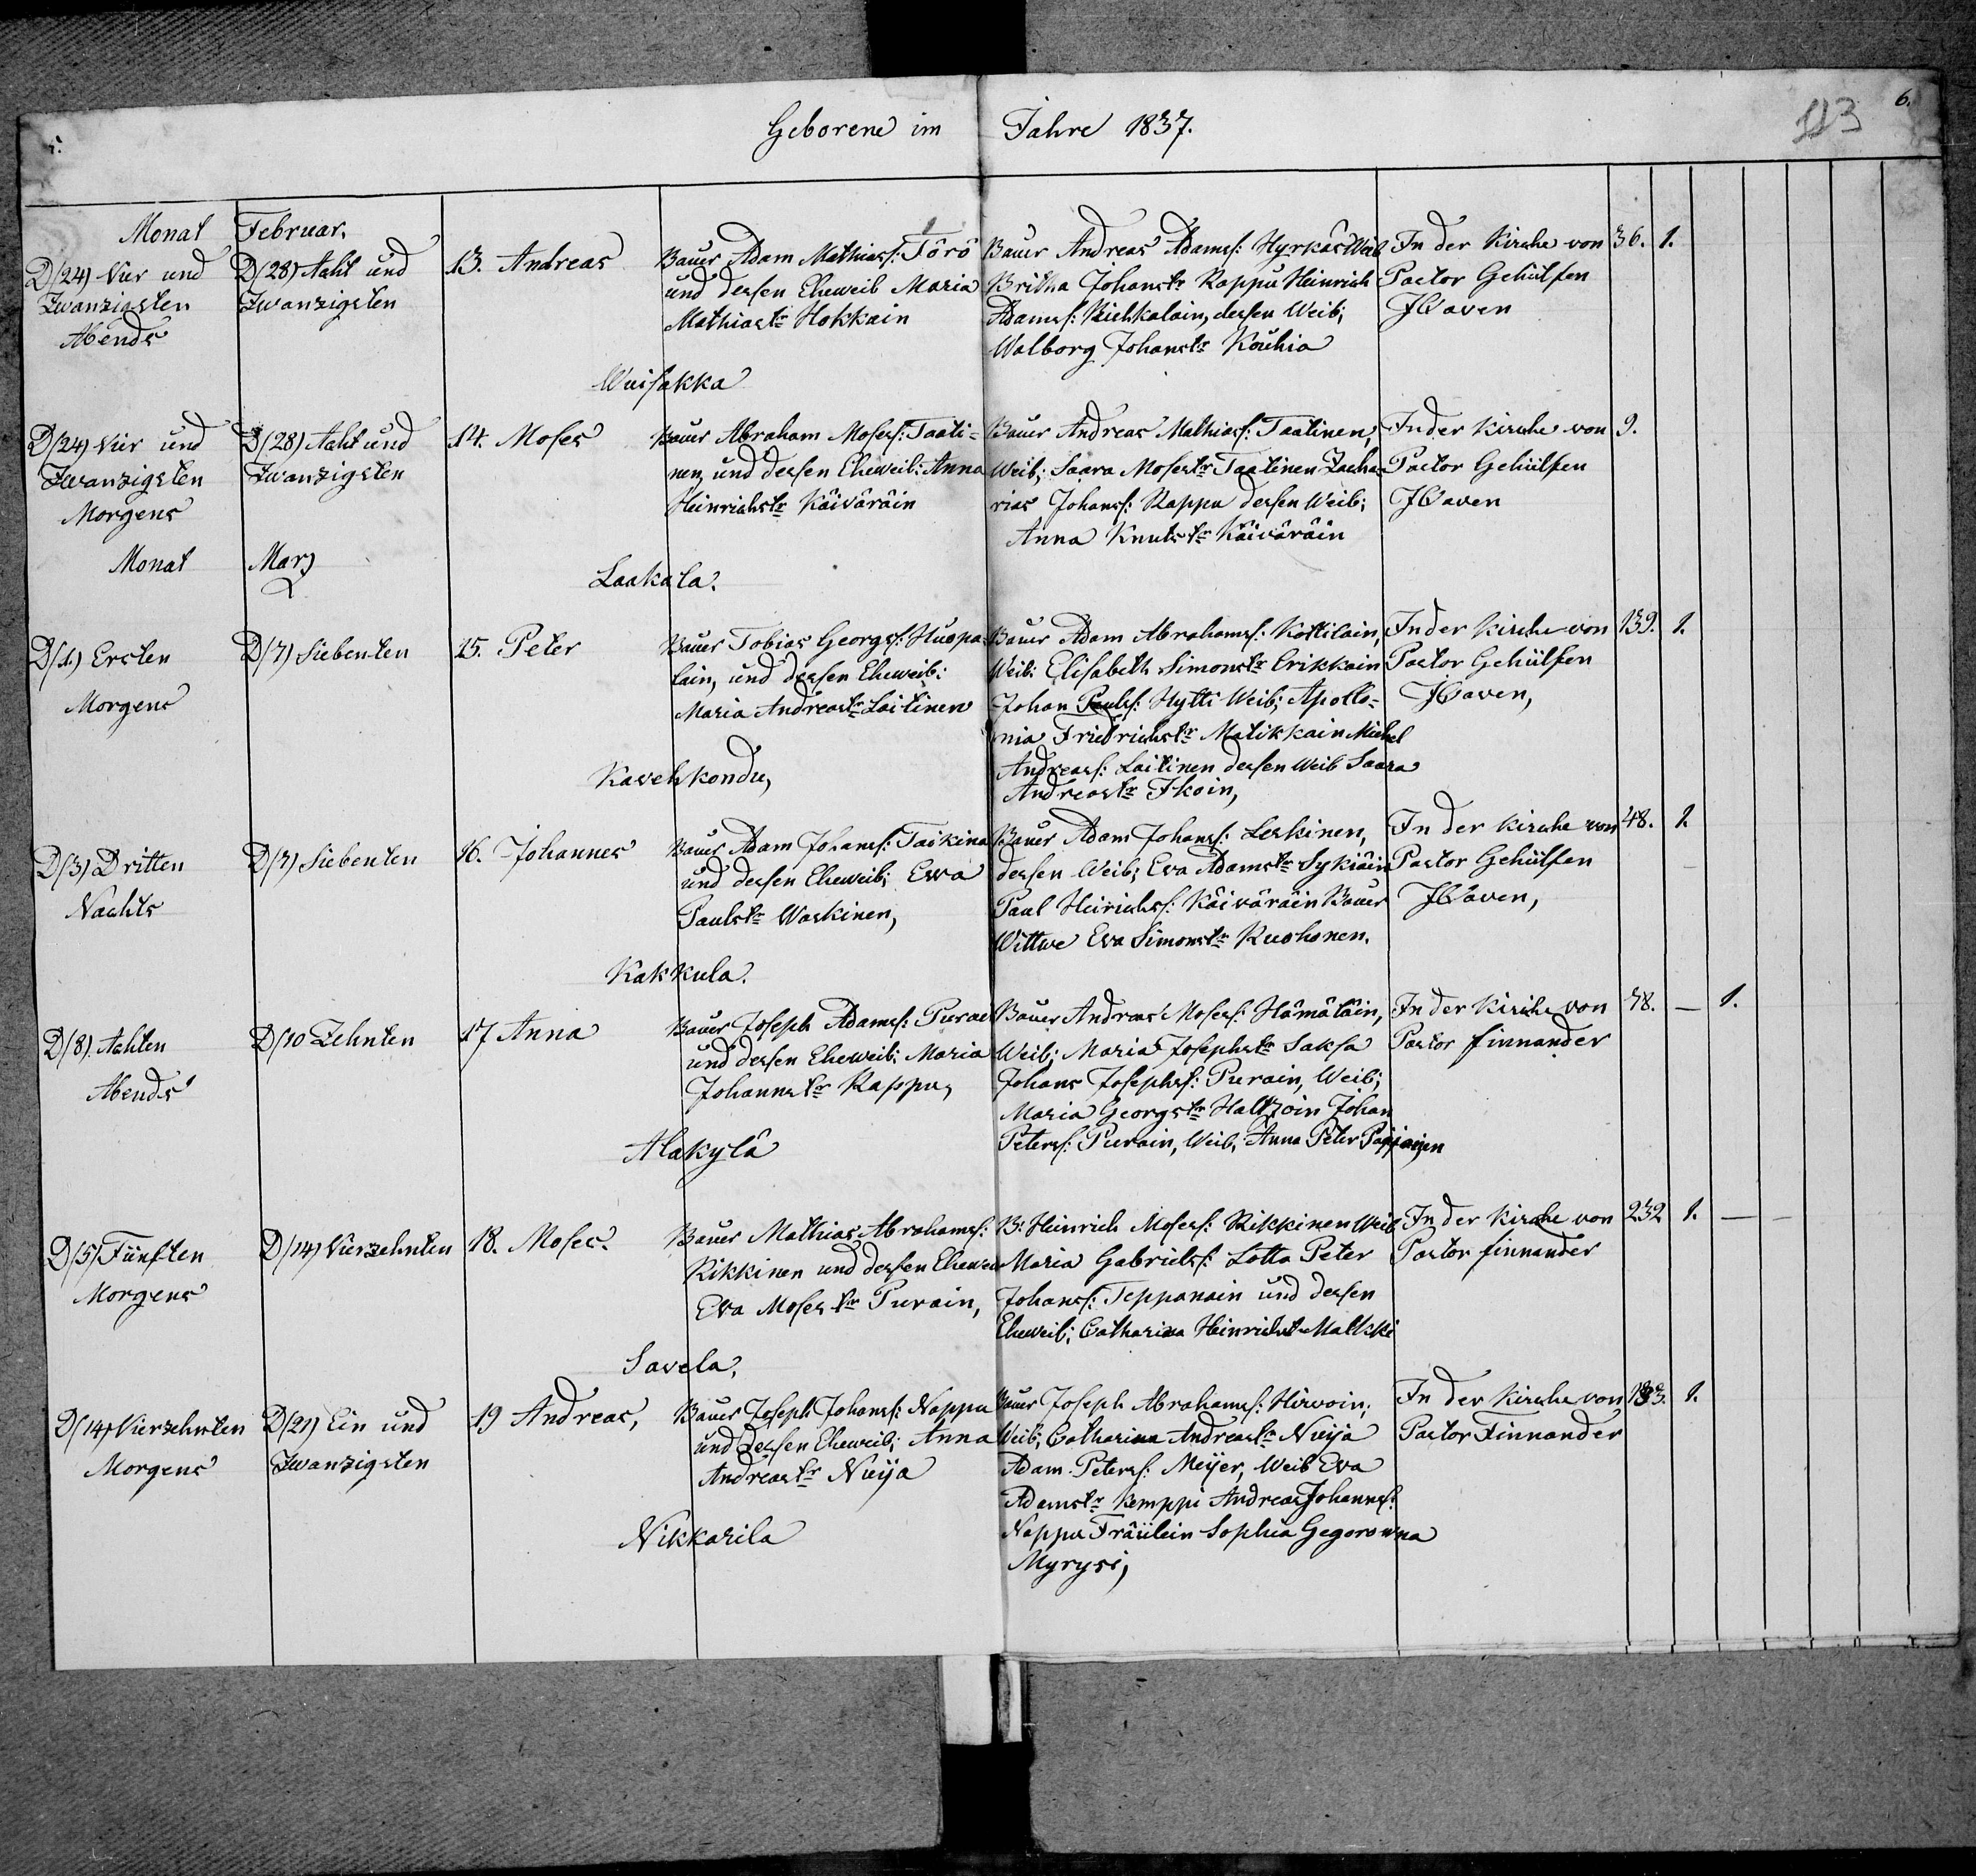 5.
Geborene im Jahre 1837.
113
6.
Monat Februar.
D/24) Vier und
Zwanzigsten
Abends
D/28) Acht und
Zwanzigsten
13. Andreas
Bauer Adam Mathiass: Törö
und dessen Eheweib Maria
Mathiastr Hokkain
Bauer Andreas Adamss: Hyrkäs Weib
Britha Johanstr Rappu Heinrich
Adamss: dessen Weib;
Walborg Johanstr Kouhia
In der Kirche von
Pastor Gehülfen
36. 1.
Wuisakka
D/24) Vier und
Zwanzigsten
Morgens
D/28) Acht und
Zwanzigsten
14. Moses
Bauer Abraham Mosess: Taati=
nen, und dessen Eheweib: Anna
Heinrichstr Käiväräin
Bauer Andreas Mathiass: Taatinen,
Weib; Saara Mosestr Taatinen Zacha=
rias Johanss: Rappu dessen Weib;
Anna Knutstr Käiväräin
In der Kirche von
Pastor Gehülfen
9.
Monat Marz
Laakala.
D/1.) Ersten
Morgens
D/7) Siebenten
15. Peter
Bauer Tobias Georgss: Huopa=
lain, und dessen Eheweib:
Maria Andreastr Laitinen
Bauer Adam Abrahamss: Kottilain,
Weib: Elisabeth Simonstr Erikkain
Johan Paulss: Hytti Weib; Apollo=
nia Friedrichstr Matikkain Michel
Andreass: Laitinen dessen Weib Saara
Andreastr Ikoin,
In der Kirche von
Pastor Gehülfen
139. 1.
Kavehkondu,
D/3) Dritten
Nachts
D/7) Siebenten
16. Johannes
Bauer Adam Johanss: Taikina
und dessen Eheweib; Ewa
Paulstr Waskinen,
Bauer Adam Johanss: Leskinen,
dessen Weib; Eva Adamstr Sykiäin
Paul Heirichss: Käiväräin Bauer
Wittwe Eva Simonstr Kuohonen.
In der Kirche von
Pastor Gehülfen
48. 1.
Kakkula.
D/8). Achten
Abends
D/10 Zehnten
17 Anna
Bauer Joseph Adamss:
und dessen Eheweib; Maria
Johannstr Rappu,
Bauer Andreas Mosess: Hämäläin,
Weib; Maria Josephstr Saksa
Johans Josephss: Purain, Weib;
Maria Georgstr Johan
Peterss: Purain, Weib, Anna Peter
In der Kirche von
Pastor Finnander
48. — 1.
Alakylä
D/5) Fünften
Morgens
D/14) Vierzehnten
18. Moses.
Bauer Mathias Abrahamss:
Rikkinen und dessen Eheweib
Eva Mosestr Purain,
B: Heinrich Mosess: Rikkinen Weib
Maria Gabrielss: Lotta Peter
Johanss: Teppanain und dessen
Eheweib; Catharina
In der Kirche von
Pastor Finnander
232 1. — —
Savela,
D/14) Vierzehnten
Morgens
D/21) Ein und
Zwanzigsten
19 Andreas,
Bauer Joseph Johanss: Nappu
und dessen Eheweib; Anna
Andreastr Nuija
Bauer Joseph Abrahamss: Hirvoin;
Weib; Catharina Andreastr Nuija
Adam Peterss: Meijer, Weib Eva
Adamstr Kemppi Andreas Johannss:
Nappu Fräulein Sophia Gegorowna
Myrysi,
In der Kirche von
Pastor Finnander
183. 1.
Nikkarila